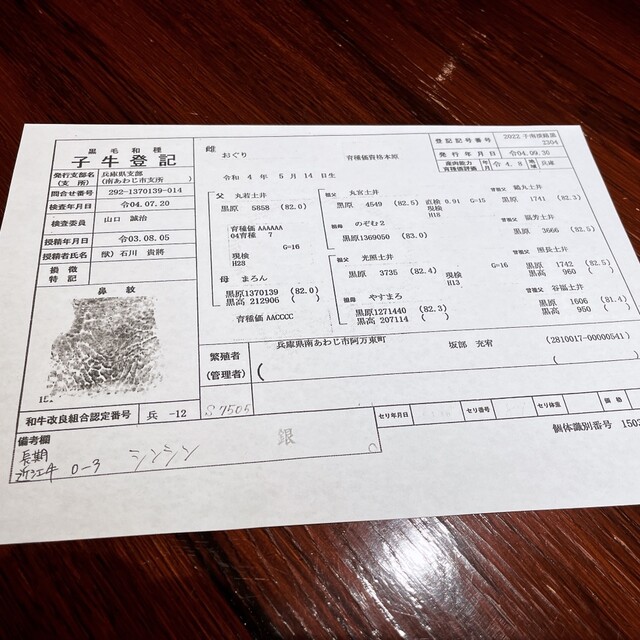 黒毛和種
子牛登記
発行支部名
(支所)
兵庫県支部
(南あわじ市支所)
問合せ番号 292-1370139-014
検査年月日 令04.07.20
検査委員 山口 誠治
授精年月日 令03.08.05
授精者氏名 獣)石川 貴將
損徴
特記
鼻紋
和牛改良組合認定番号 兵 -12
備考欄
長期
0-3 シンシン
銀
雌
おぐり 育種価資格本原
令和 4年 5月 14日生
登記記号番号 2022 子南淡經黒
2304
発行年月日 令04.09.30
産肉能力
育種価評価
年月 令 4. 8 地域 兵庫
父 丸若土井
黒原 5858 (82.0)
育種価 AAAAAA
04育種 7
G=16
現検
H28
母 まろん
黒原1370139 (82.0)
黒高 212906 ( )
育種価 AACCCC
祖父 丸宮土井
黒原 4549 (82.5)
直検 0.91 G=15
現検
H18
祖母 のぞむ2
黒原1369050 (83.0)
祖父 光照土井
黒原 3735 (82.4)
現検 G=16
H13
祖母 やすまろ
黒原1271440 (82.3)
黒高 207114 ( )
曽祖父 鶴丸土井
黒原 1741 (82.3)
曽祖父 富芳土井
黒原 3666 (82.5)
曽祖父 照長土井
黒原 1742 (82.5)
黒高 960 ( )
曽祖父 谷福土井
黒原 1606 (81.4)
黒高 950 ( )
繁殖者
(管理者)
兵庫県南あわじ市阿万東町 坂部 充宥 (2810017-00000541)
( )
S7505
セリ年月日 セリ番号 セリ体重 価格
個体識別番号 1503